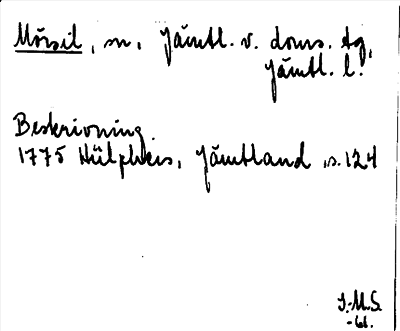 Mörsil, sn, Jämtl. v. doms. tg,
Jämtl. l.
Beskrivning.
1775 Hülphers, Jämtland, s. 124
J.M.S.
-61.